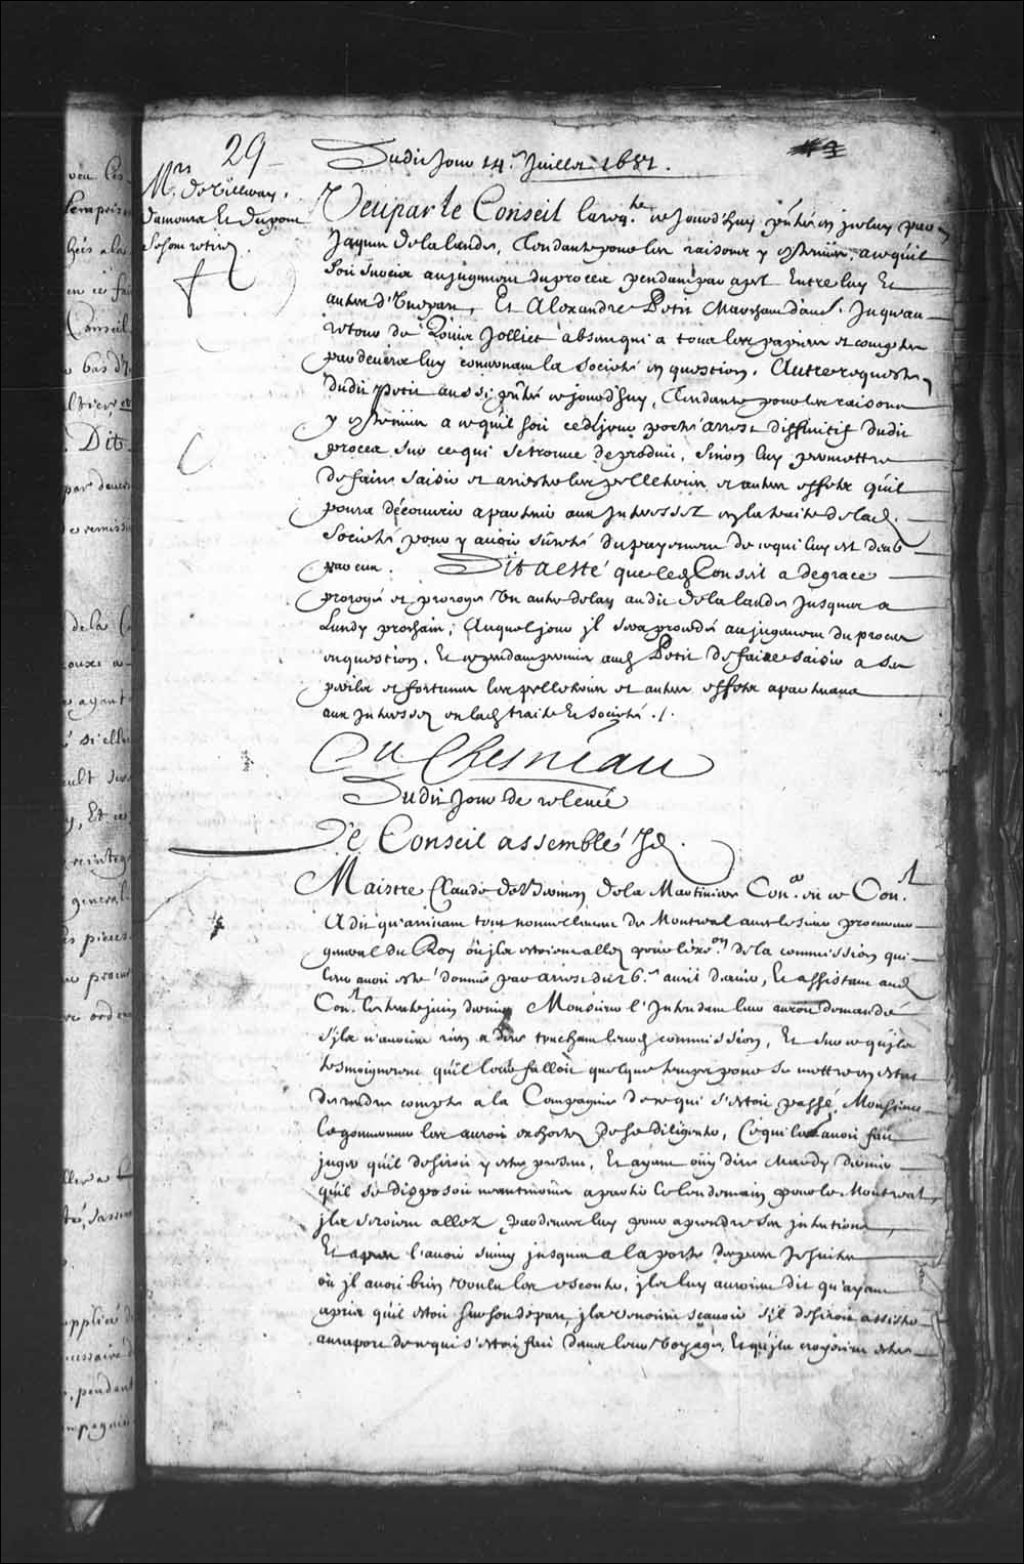 29
Dudit Jour 14.e Juillet 1681.
Mrs de Tilly
Damours Et Dupont
se sont retirez
Veu par le Conseil la reqte. ce jourd'huy pntée en iceluy par
Jaques de la lande, Tendante pour les raisons y contenues, a ce qu'il
soit sursis au jugement du procez pendant par apel Entre luy Et
autres d'Une part, Et Alexandre Petit Marchand d'autre. Jusqu'au
retour de Louis Jolliet absent qui a tous les papiers et comptes
pardevers luy concernant la Societé en question. Autre requeste
dudit Petit aussi pntée ce jourd'huy, Tendante pour les raisons
y contenues a ce qu'il soit cedit jour porté arrest diffinitif dudit
procez sur ce qui se trouve de produit, Sinon luy permettre
de faire saisir et arrester les pelleteries et autres effets qu'il
pourra découvrir apartenir aux Interessez en la traite de lad.
Societé pour y avoir sûreté du payement de ce qui luy est deub
par eux. Dit a esté que led Conseil a de grace
prorogé et proroge Un autre delay audit de la lande jusques a
Lundy prochain; Auquel jour il sera procedé au jugement du procez
en question. Et cependant permis aud Petit de faire saisir a ses
perils et fortunes les pelleteries et autres effets apartenans
aux Interessez en lad traite Et Societé ./.
Du Chesneau
Dudit Jour de relevée
Le Conseil assemblé
Maistre Claude de Bermen de la Martiniere Coner. en ce Conel.
A dit qu'arrivant tout nouvellement de Montreal avec le sieur procureur
general du Roy où ils estoient allez pour l'exon. de la commission qui
leur avoit esté donnée par arrest du 26.e avril dernier, Et assistant aud
Conel. le trente juin dernier Monsieur l'Intendant leur auroit demandé
s'ils n'avoient rien a dire touchant leurd commission, Et sur ce qu'ils
tesmoignerent qu'il leur falloit quelque temps pour se mettre en estat
de rendre compte a la Compagnie de ce qui s'estoit passé, Monsieur
le gouverneur les auroit exhortez de se diligenter, Ce qui leur avoit fait
juger qu'il desiroit y estre present, Et ayant ouy dire Mardy dernier
qu'il se disposoit neantmoins a partir le lendemain pour le Montreal,
ils seroient allez pardevers luy pour aprendre ses intentions,
Et apres l'avoir suivy jusques a la porte des peres Jesuites
où il avoit bien voulu les escouter, ils luy auroient dit qu'ayant
apris qu'il estoit sur son départ, ils venoient sçavoir s'il desiroit assister
au raport de ce qui s'estoit fait dans leur Voyage, Et qu'ils croyoient estre